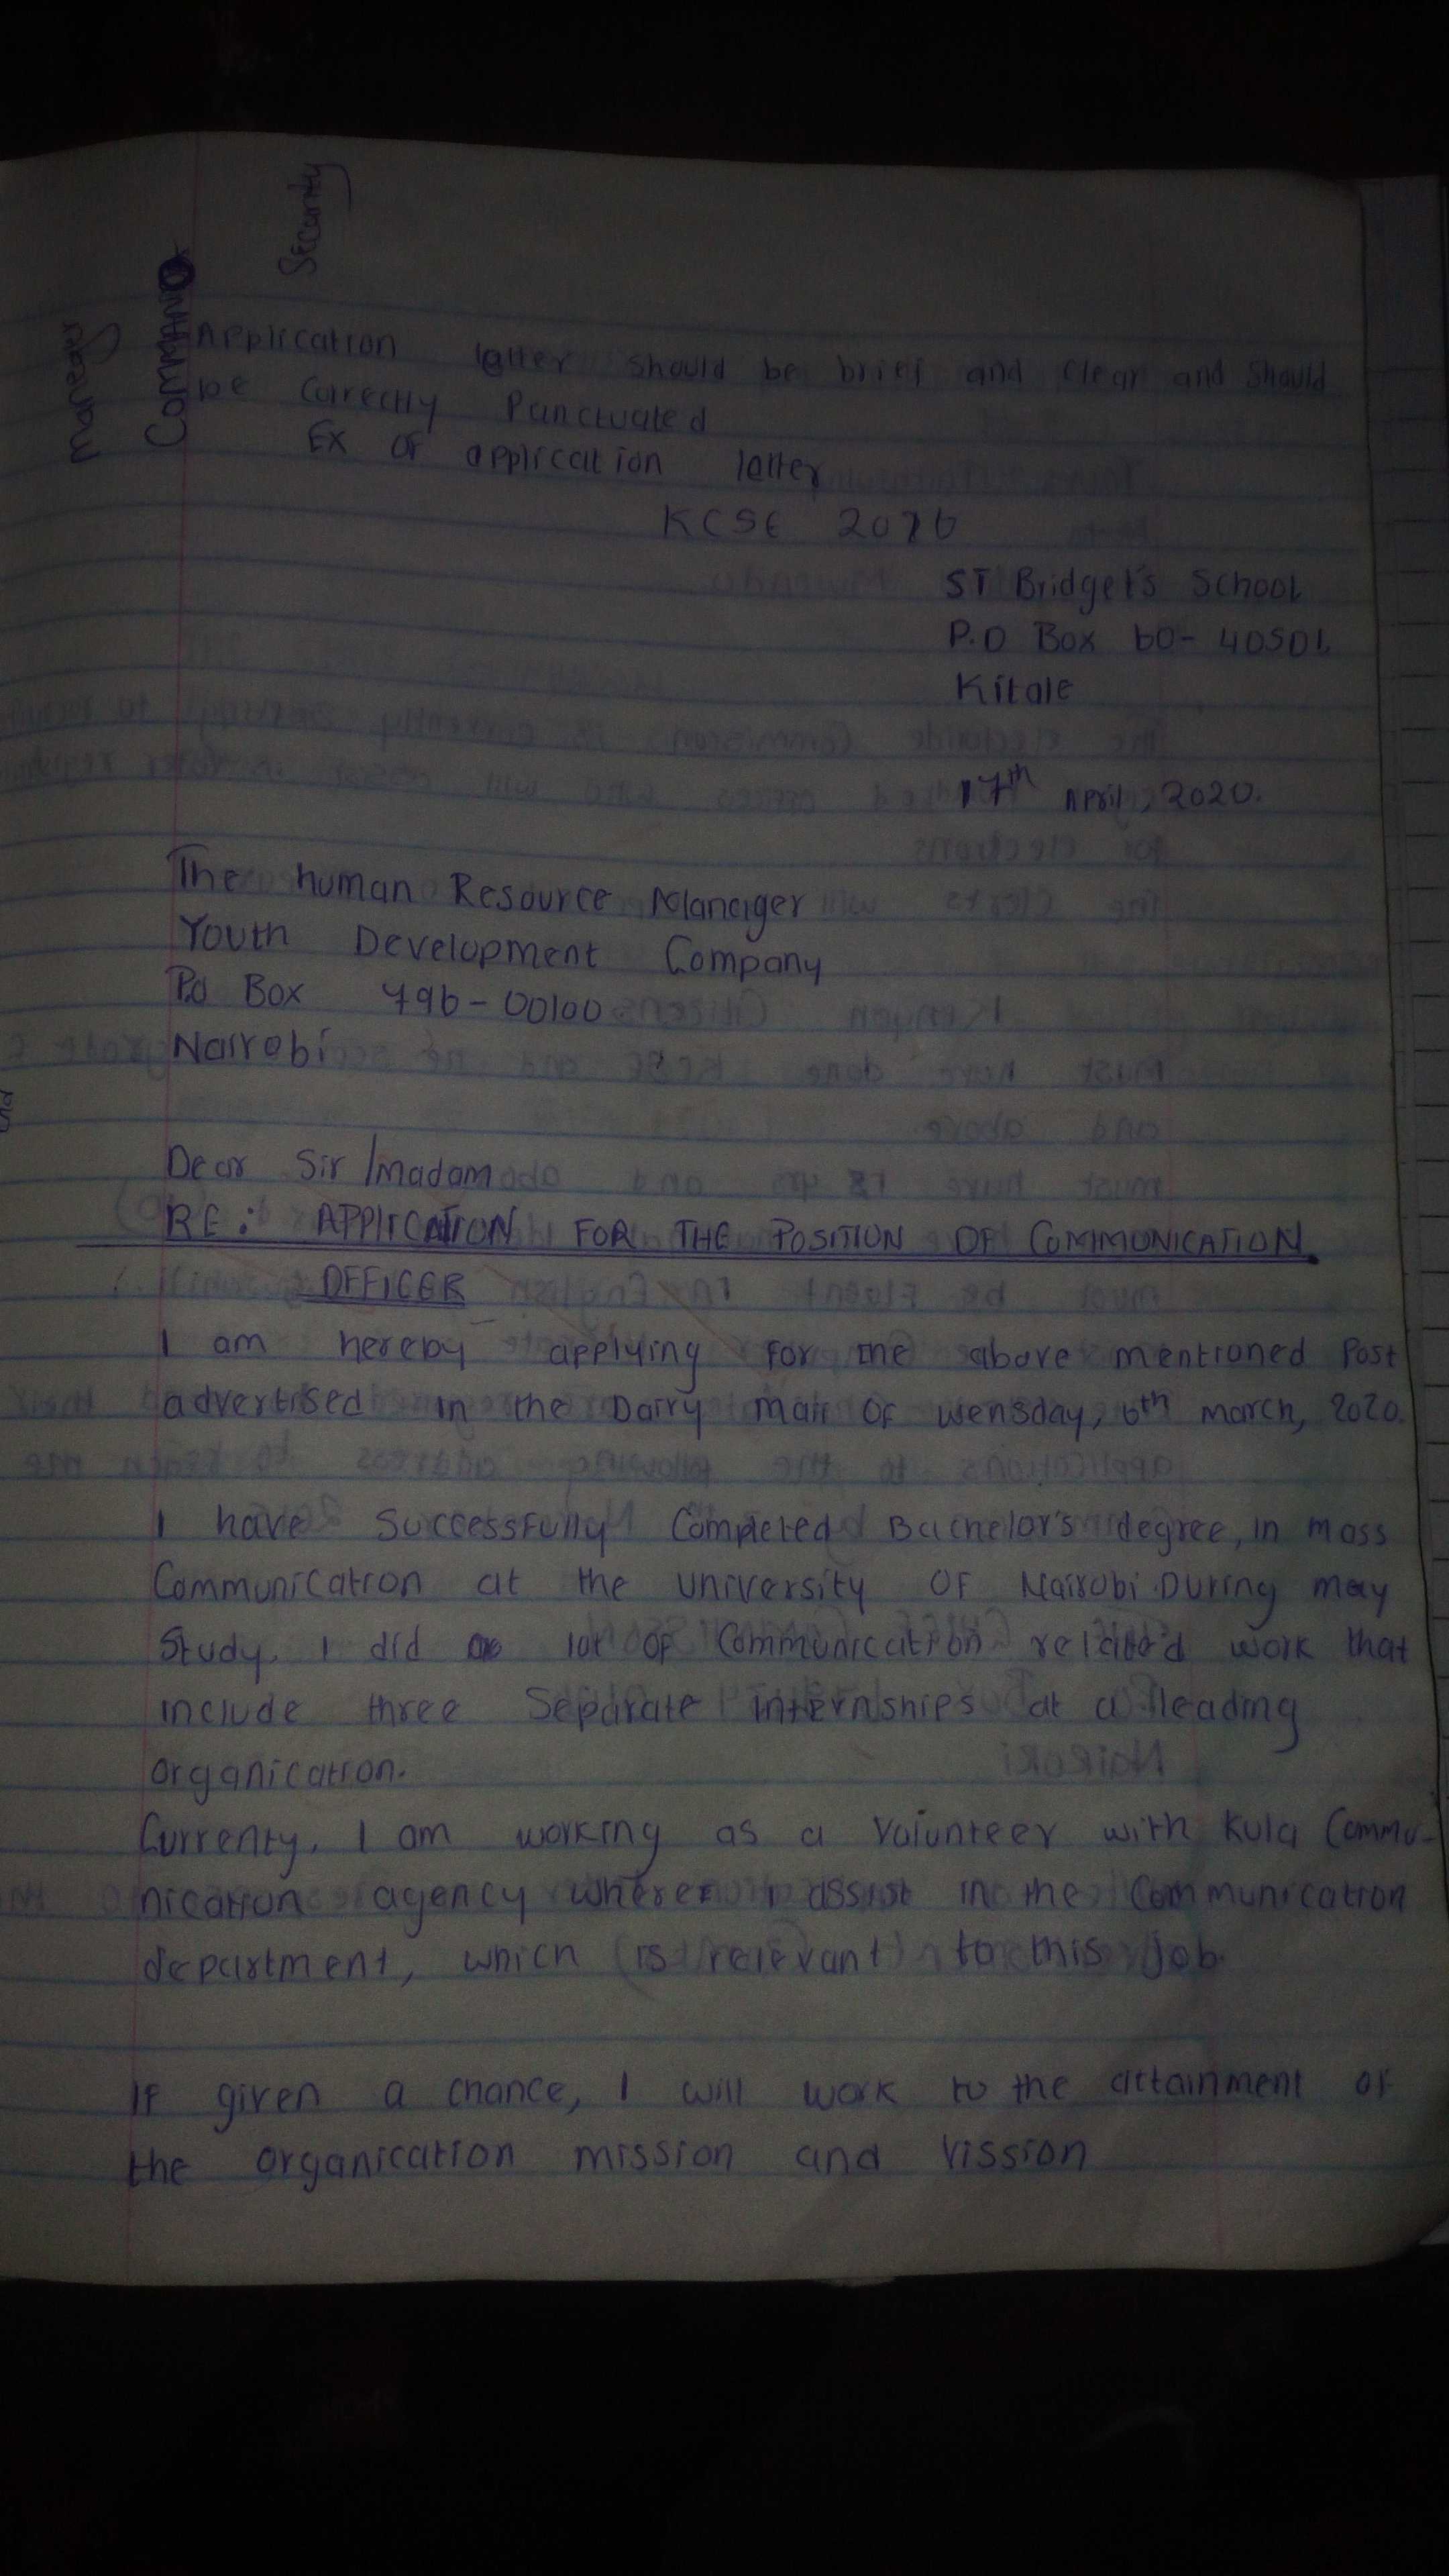 Security
Maneger
COMMAND
Application letter should be brief and clear and should
be Correctly Punctuated
Ex of application letter
KCSE 2016
ST Bridget's School
P.O Box 60-40501
Kitale
17th April, 2020.
The human Resource Manager
Youth Development Company
P.o Box 796-00100
Nairobi
Dear Sir /madam
RE: APPLICATION FOR THE POSITION OF COMMUNICATION
OFFICER
I am hereby applying for the above mentioned Post
advertised in the Dairy Mair of wensday, 6th march, 2020.
I have Successfully Completed Bachelor's degree, in mass
Communication at the university OF Nairobi. During may
Study. I did a lot of Communication related work that
include three Separate internships at a leading
organication.
Currenty, I am working as a Volunteer with Kula Commu-
nication agency where I assist in the Communication
department, which is relevant to this job.
If given a chance, I will work to the attainment of
the organication mission and Vission